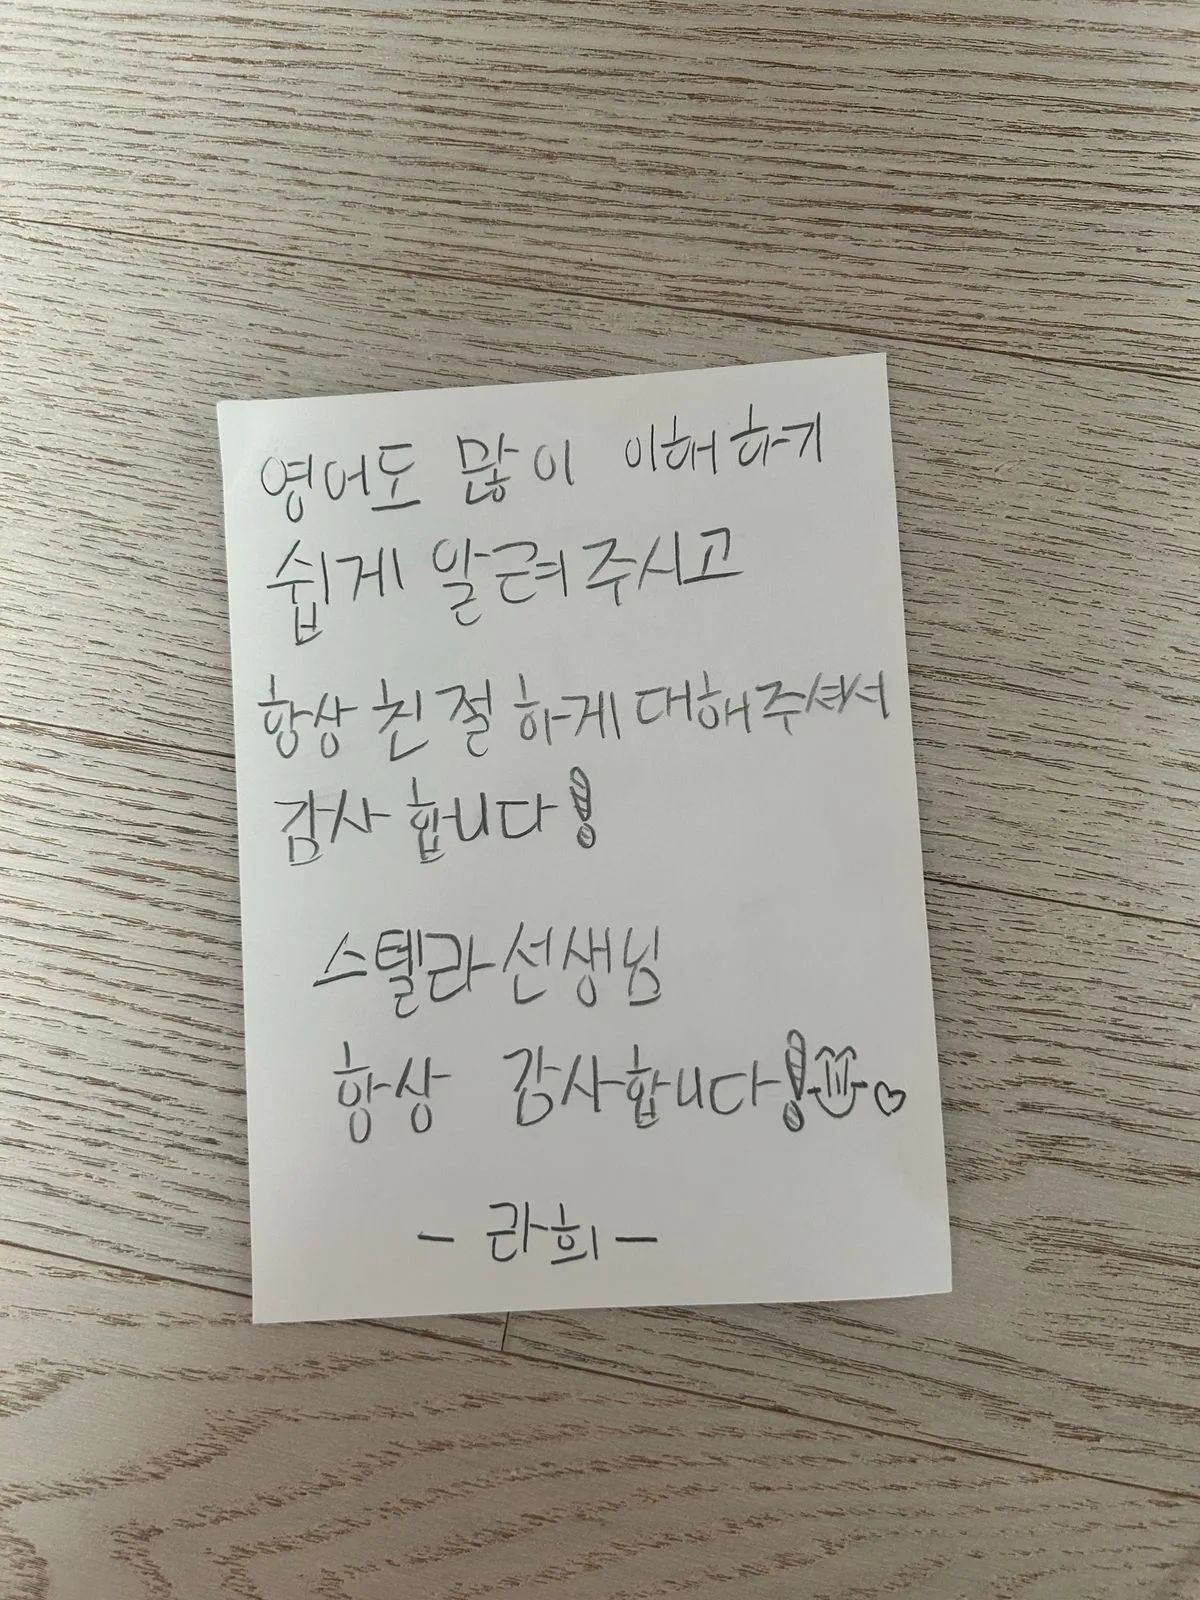 영어도 많이 이해하기
쉽게 알려주시고
항상 친절하게 대해주셔서
감사합니다!
스텔라선생님
항상 감사합니다!♡
- 라희 -